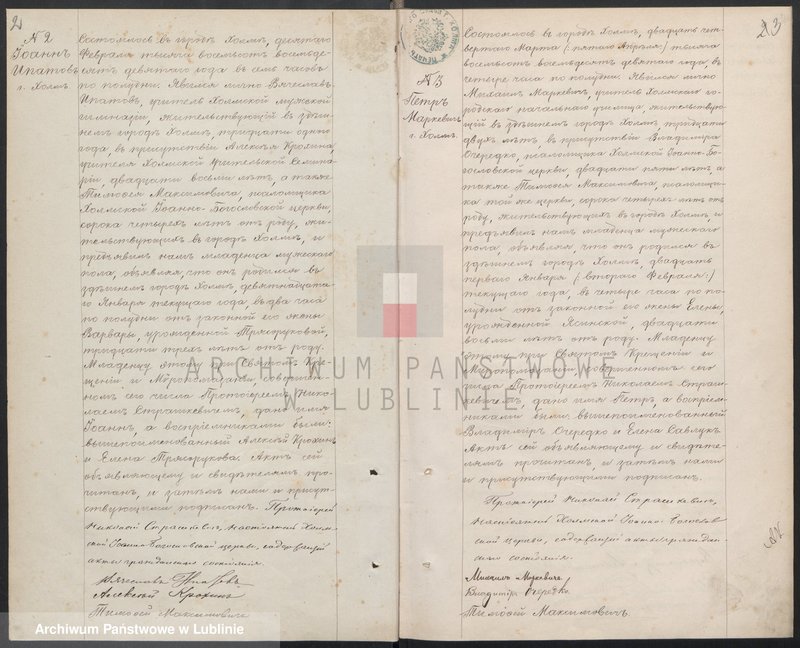 2
N 2
Іоаннъ
Ипатовъ
г. Холмъ
Состоялось въ городѣ Холмѣ, десятаго
Февраля тысяча восемьсотъ восемьде-
сятъ девятаго года въ семь часовъ
по полудни. Явился лично Вячеславъ
Ипатовъ, учитель Холмской мужской
гимназіи, жительствующій въ здѣш-
немъ городѣ Холмѣ, тридцати одного
года, въ присутствіи Алексѣя Крохина,
учителя Холмской Учительской Семина-
ріи, двадцати восьми лѣтъ, а также
Тимоѳея Максимовича, псаломщика
Холмской Іоанно-Богословской церкви,
сорока четырехъ лѣтъ отъ роду, жи-
тельствующихъ въ городѣ Холмѣ, и
предъявилъ намъ младенца мужескаго
пола, объявляя, что онъ родился въ
здѣшнемъ городѣ Холмѣ, девятнадцата-
го Января текущаго года, въ два часа
по полудни отъ законной его жены
Варвары, урожденной
тридцати трехъ лѣтъ отъ роду.
Младенцу этому при Святомъ Кре-
щеніи и Мѵропомазаніи совершен-
номъ сего числа Протоіереемъ Нико-
лаемъ Страшкевичемъ, дано имя
Іоаннъ, а воспріемниками были:
вышепоименованный Алексѣй Крохинъ
и Елена Актъ сей
объявляющему и свидѣтелямъ про-
читанъ, и затѣмъ нами и присут-
ствующими подписанъ. Протоіерей
Николай Страшкевичъ, настоятель Холм-
ской Іоанно-Богословской церкви, содержащій
акты гражданскаго состоянія.
Вячеславъ Ипатовъ
Алексѣй Крохинъ
Тимоѳей Максимовичъ
3
N 3
Петръ
Маркевичъ
г. Холмъ
Состоялось въ городѣ Холмѣ, двадцать чет-
вертаго Марта (:пятаго Апрѣля:) тысяча
восемьсотъ восемьдесятъ девятаго года, въ
четыре часа по полудни. Явился лично
Михаилъ Маркевичъ, учитель Холмскаго го-
родскаго начальнаго училища, жительствую-
щій въ здѣшнемъ городѣ Холмѣ тридцати
двухъ лѣтъ, въ присутствіи Владиміра
Очередко, псаломщика Холмской Іоанно-Бо-
гословской церкви, двадцати пяти лѣтъ, а
также Тимоѳея Максимовича, псаломщи-
ка той же церкви, сорока четырехъ лѣтъ отъ
роду, жительствующихъ въ городѣ Холмѣ, и
предъявилъ намъ младенца мужескаго
пола, объявляя, что онъ родился въ
здѣшнемъ городѣ Холмѣ, двадцать
перваго Января (:втораго Февраля:)
текущаго года, въ четыре часа по по-
лудни отъ законной его жены Елены,
урожденной Ясинской, двадцати
восьми лѣтъ отъ роду. Младенцу
этому при Святомъ Крещеніи и
Мѵропомазаніи, совершенномъ сего
числа Протоіереемъ Николаемъ Страш-
кевичемъ, дано имя Петръ, а воспріем-
никами были: вышепоименованный
Владиміръ Очередко и Елена Савлукъ
Актъ сей объявляющему и свидѣте-
лямъ прочитанъ, и затѣмъ нами
и присутствующими подписанъ.
Протоіерей Николай Страшкевичъ,
настоятель Холмской Іоанно-Богослов-
ской церкви, содержащій акты граждан-
скаго состоянія.
Михаилъ Маркевичъ
Владиміръ Очередко
Тимоѳей Максимовичъ
ARCHIWUM PAŃSTWOWE
W LUBLINIE
Archiwum Państwowe w Lublinie